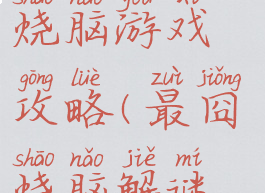 shāo nǎo yóu xì
烧脑游戏
gōng lüè zuì jiǒng
攻略(最囧
shāo nǎo jiě mí
烧脑解谜